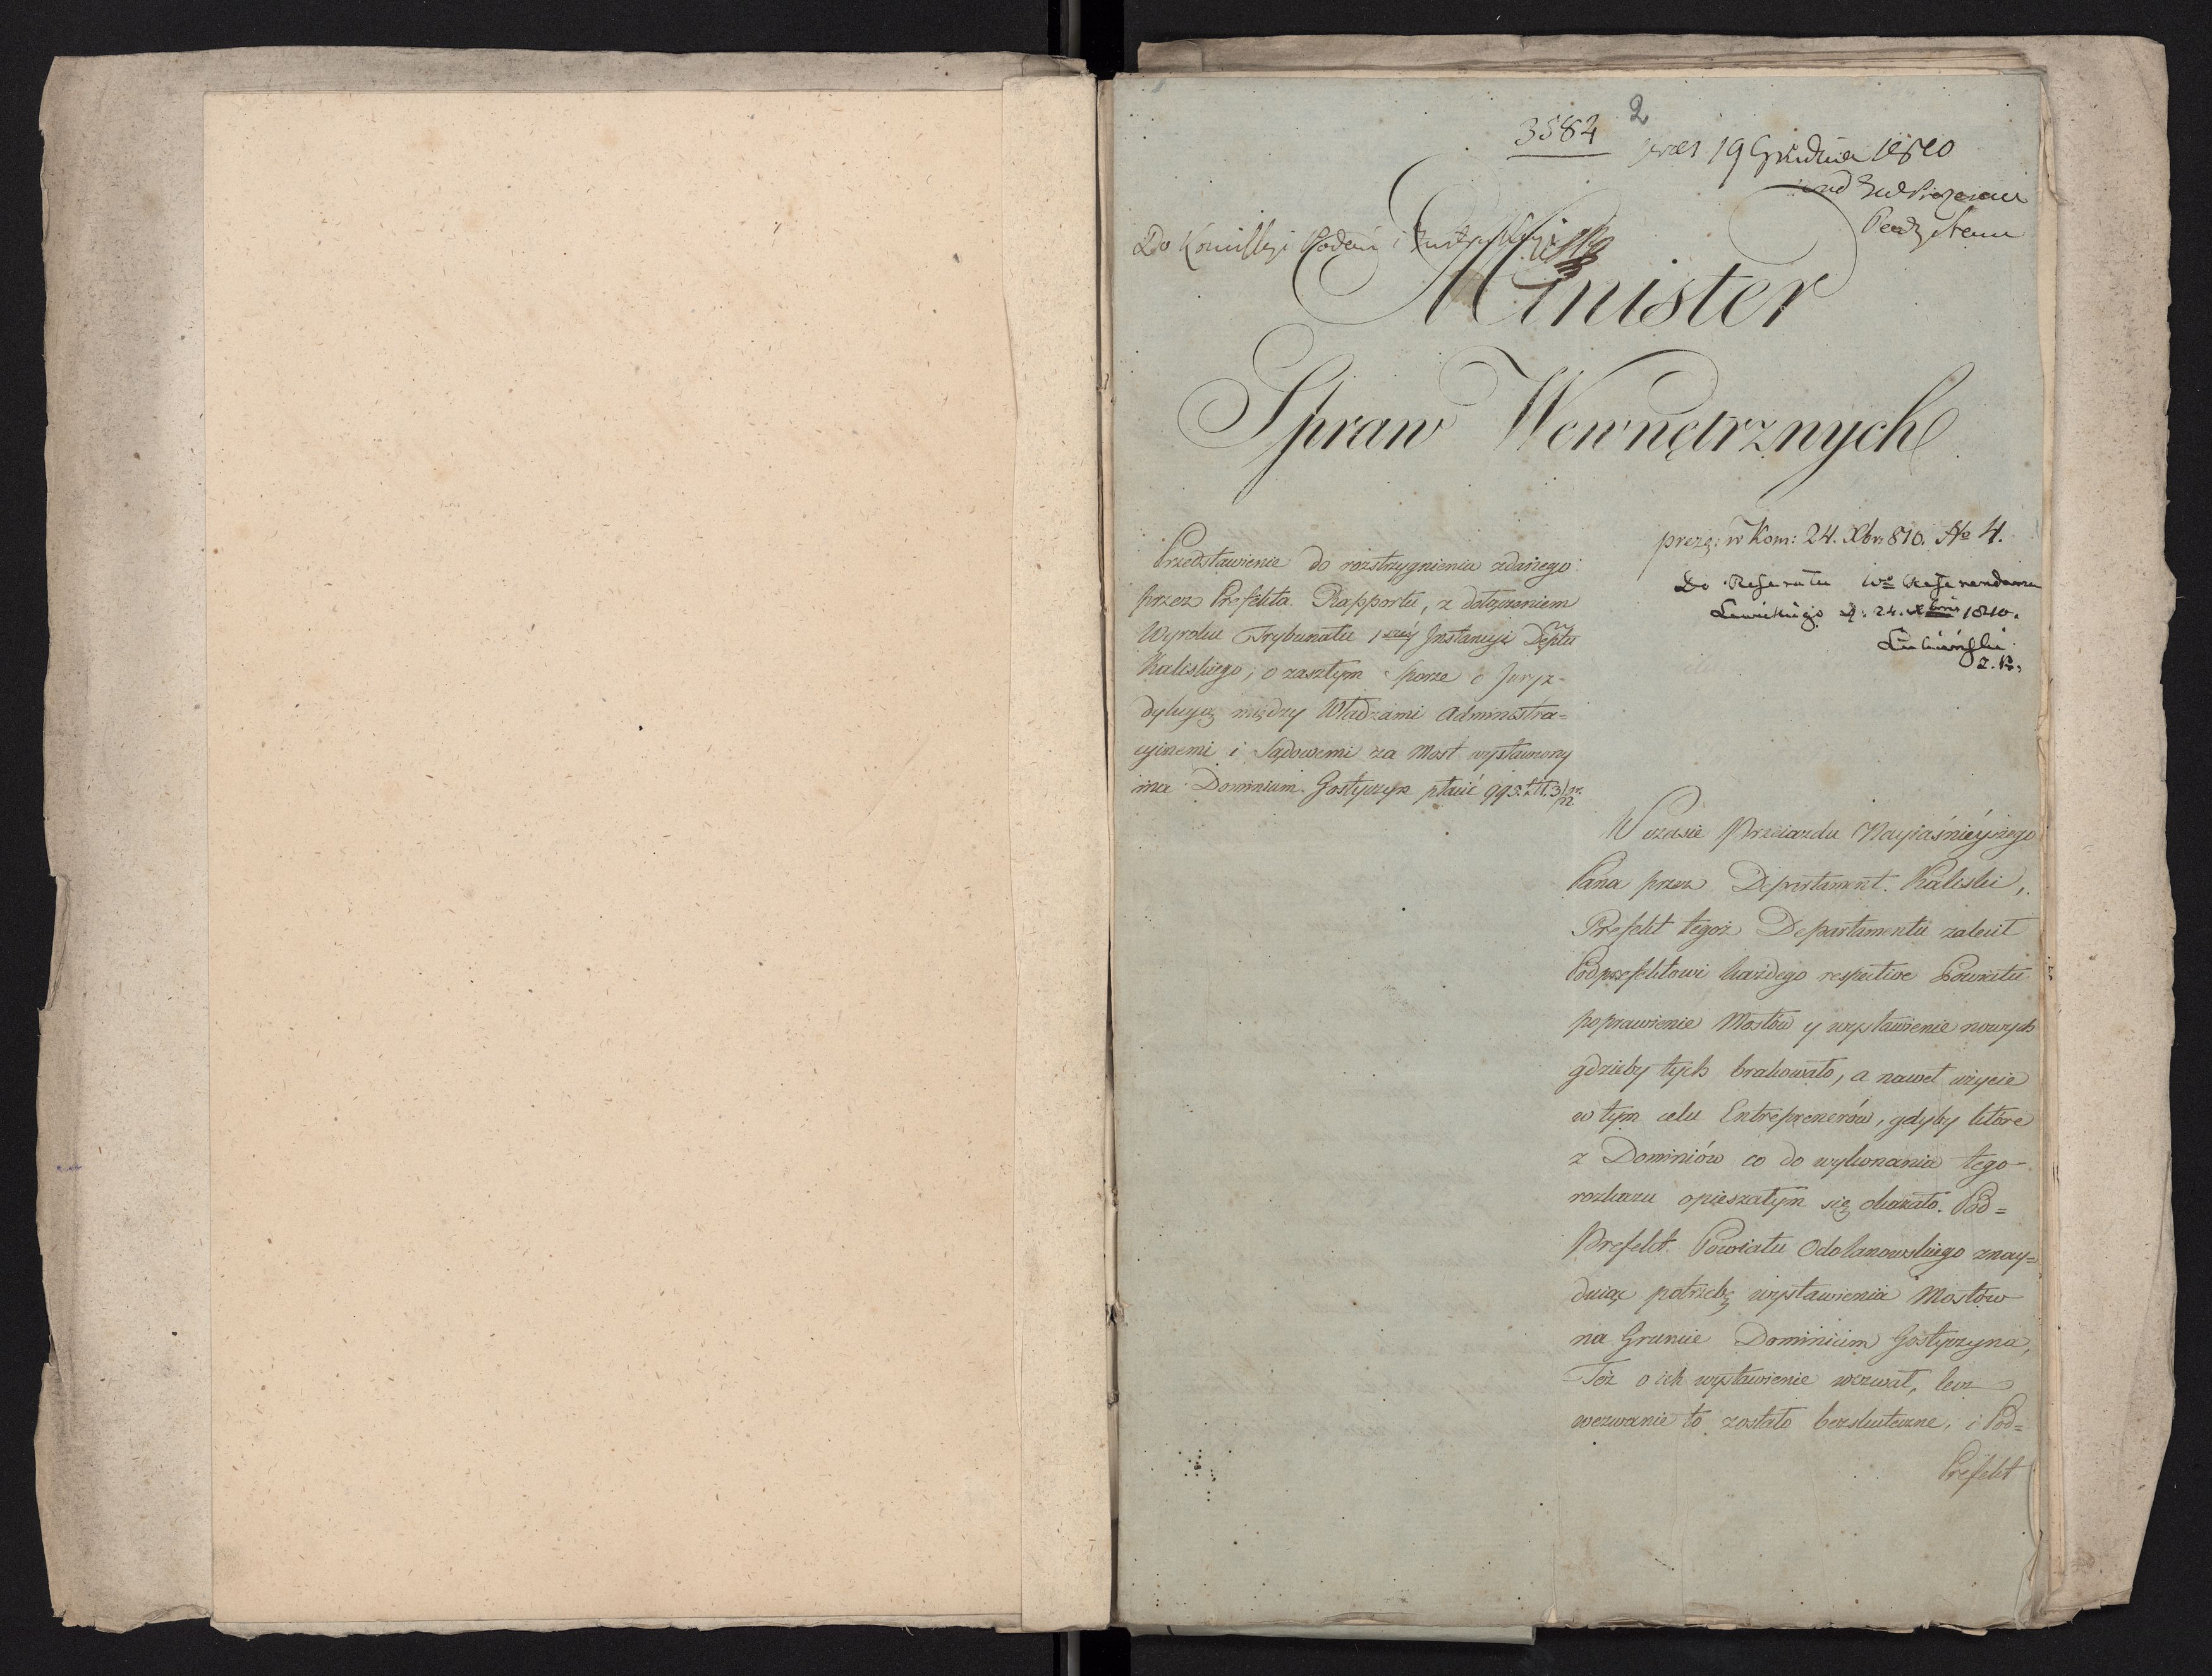 2
3584
prez 19 Grudnia 1810
Do Komissyi Podań i Instrukcyi
Minister
Spraw Wewnętrznych
prezę: w Kom: 24. Xbr 810. No 4.
Do Referatu Wo Referendarza
Lewickiego d: 24. Xbris 1810.
Łubieński
Przedstawienie do rozstrzygnienia zdanego
przez Prefekta Rapportu, z dołączeniem
Wyroku Trybunału 1széy Instancyi Deptu
Kaliskiego, o zaszłym sporze o Juryz=
dykcyą między Władzami Administra=
cyinemi i Sądowemi za Most wystawiony
ma Dominium Gostyczyn płacić 995. Zł. 3
W czasie Przeiazdu Nayiaśnieyszego
Pana przez Departament Kaliski,
Prefekt tegoż Departamentu zalecił
Podprefektowi każdego respective Powiatu
poprawienie Mostów y wystawienie nowych
gdzieby tych brakowało, a nawet użycie
w tym celu Entreprenerów, gdyby które
z Dominiów co do wykonania tego
rozkazu opieszałym się okazało. Pod=
Prefekt Powiatu Odolanowskiego znay=
duiąc potrzebę wystawienia Mostów
na Gruncie Dominium Gostyczyna,
Też o ich wystawienie wezwał, lecz
wezwanie to zostało bezskuteczne, i Pod=
Prefekt